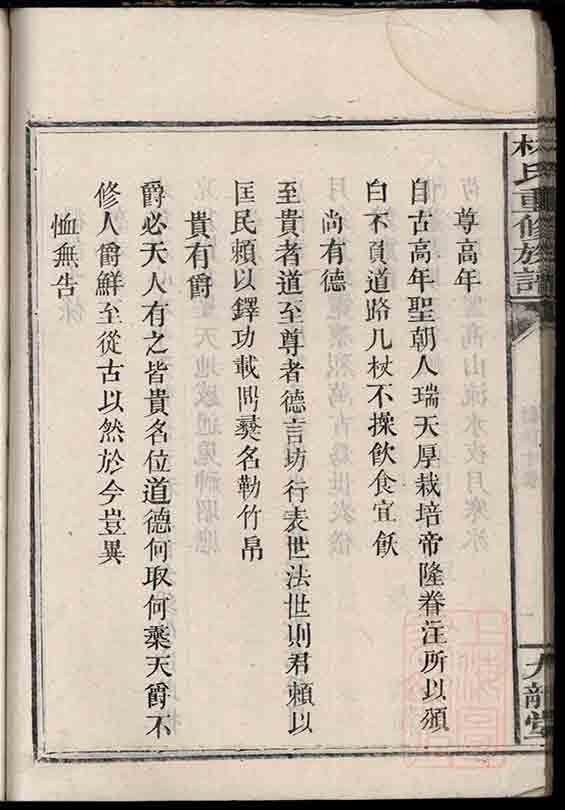 林氏重修族譜
九龍堂
尊高年
自古高年聖朝人瑞天厚栽培帝隆眷注所以頒
白不負道路几杖不操飲食宜飫
尚有德
至貴者道至尊者德言坊行表世法世則君賴以
匡民賴以鐸功載鼎彝名勒竹帛
貴有爵
爵必天人有之皆貴名位道德何取何棄天爵不
修人爵鮮至從古以然於今豈異
恤無告